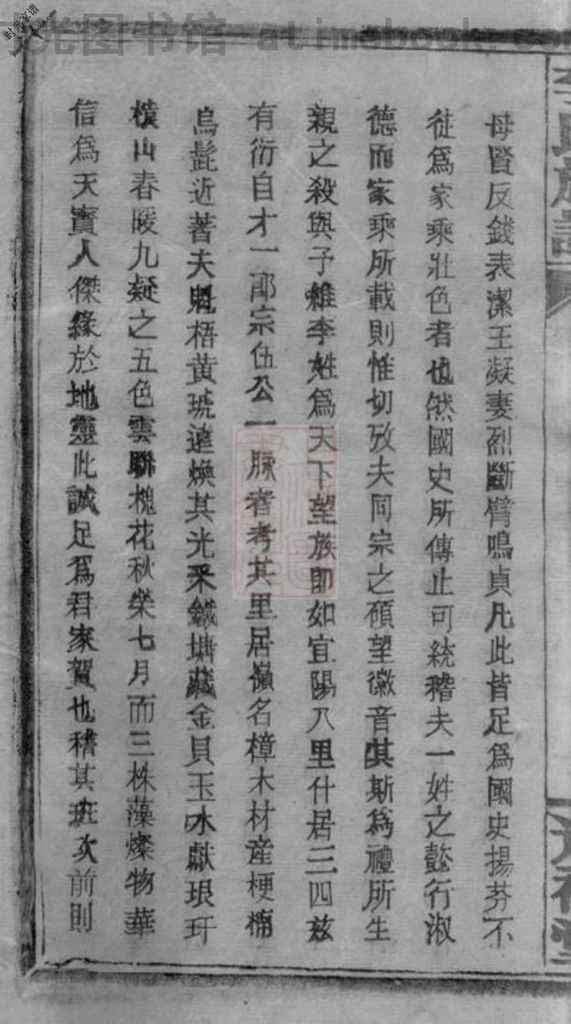 母賢反錢表潔王凝妻烈斷臂鳴貞凡此皆足為國史揚芬不
徒為家乘壯色者也然國史所傳止可統稽夫一姓之懿行淑
德而家乘所載則惟切攷夫同宗之碩望徽音其斯為禮所生
親之殺與予維李姓為天下望族即如宜陽八里什居三四茲
有衍自才一郎宗伍公一脉者考其里居嶺名樟木材產梗楠
烏髭近著夫魁梧黄琥遠煥其光釆鐵塘藏金貝玉水獻琅玕
橫山春暖九凝之五色雲聯槐花秋榮七月而三株藻燦物華
信為天寶人傑緣於地靈此誠足為君家賀也稽其班次前則
李氏族譜
光图书馆 atimebook.com
时光家谱